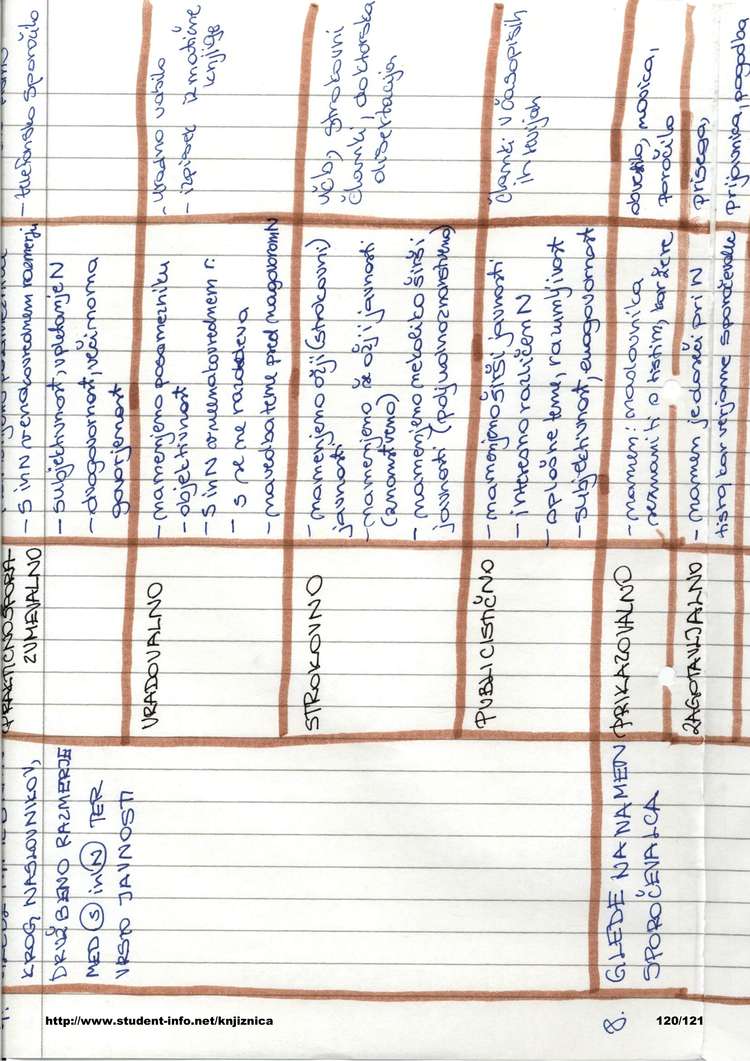 7.
KROG NASLOVNIKOV,
DRUŽBENO RAZMERJE
MED S in N TER
VRSTO JAVNOSTI
PRAKTIČNOSPORA-
ZUMEVALNO
- S in N v enakovrednem razmerju
- subjektivnost, pletanje N
- dvogovornost, večinoma
govorjenost
- telefonsko sporočilo
URADOVALNO
- namenjeno posamezniku
- objektivnost
- S in N v neenakovrednem r.
- S se ne razodeva
- navedba teme pred nagovorom N
- uradno vabilo
- izpisek iz matične
knjige
STROKOVNO
- namenjeno ožji (strokovni)
javnosti
- namenjeno še ožji javnosti
(znanstveno)
- namenjeno nekoliko širši
javnosti (poljudnoznanstveno)
učb., strokovni
članki, doktorska
disertacija
PUBLICISTIČNO
- namenjeno širši javnosti
- interesno različen N
- splošne teme, razumljivost
- subjektivnost, enogovornost
članki v časopisih
in revijah
8.
GLEDE NA NAMEN
SPOROČEVALCA
PRIKAZOVALNO
- namen: naslovnika
seznaniti o tistim, kar žele
obvestilo, novica,
poročilo
ZAGOTAVLJALNO
- namen je doseči pri N
tisto, kar verjame sporočevalec
prisega,
prijavnica, pogodba
http://www.student-info.net/knjiznica
120/121